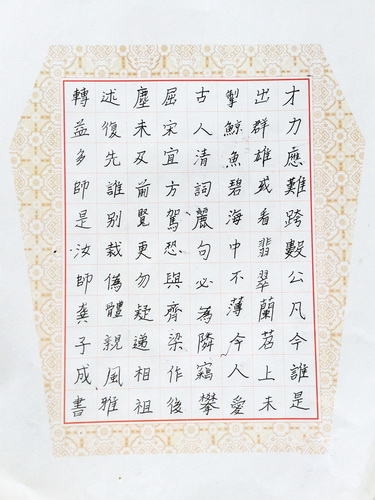 才力應難跨數公凡今誰是
出群雄或看翡翠蘭苕上未
掣鯨魚碧海中不薄今人愛
古人清詞麗句必為隣竊攀
屈宋宜方駕恐與齊梁作後
塵未及前賢更勿疑遞相祖
述復先誰別裁偽體親風雅
轉益多師是汝師龔子成書